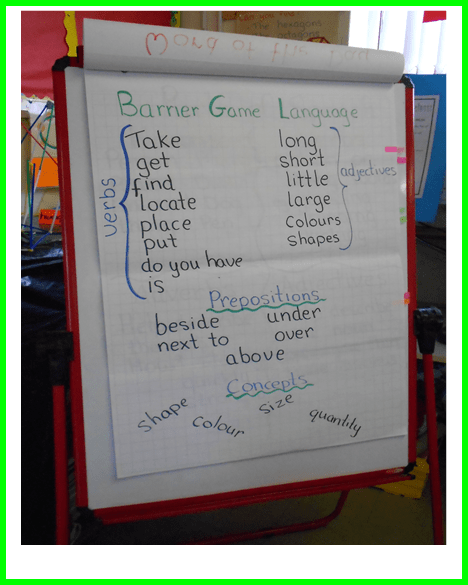 The hexagons
Word of the Day
Barrier Game Language
verbs
Take
get
find
locate
place
put
do you have
is
long
short
little
large
colours
shapes
adjectives
Prepositions
beside under
next to over
above
Concepts
shape colour size quantity